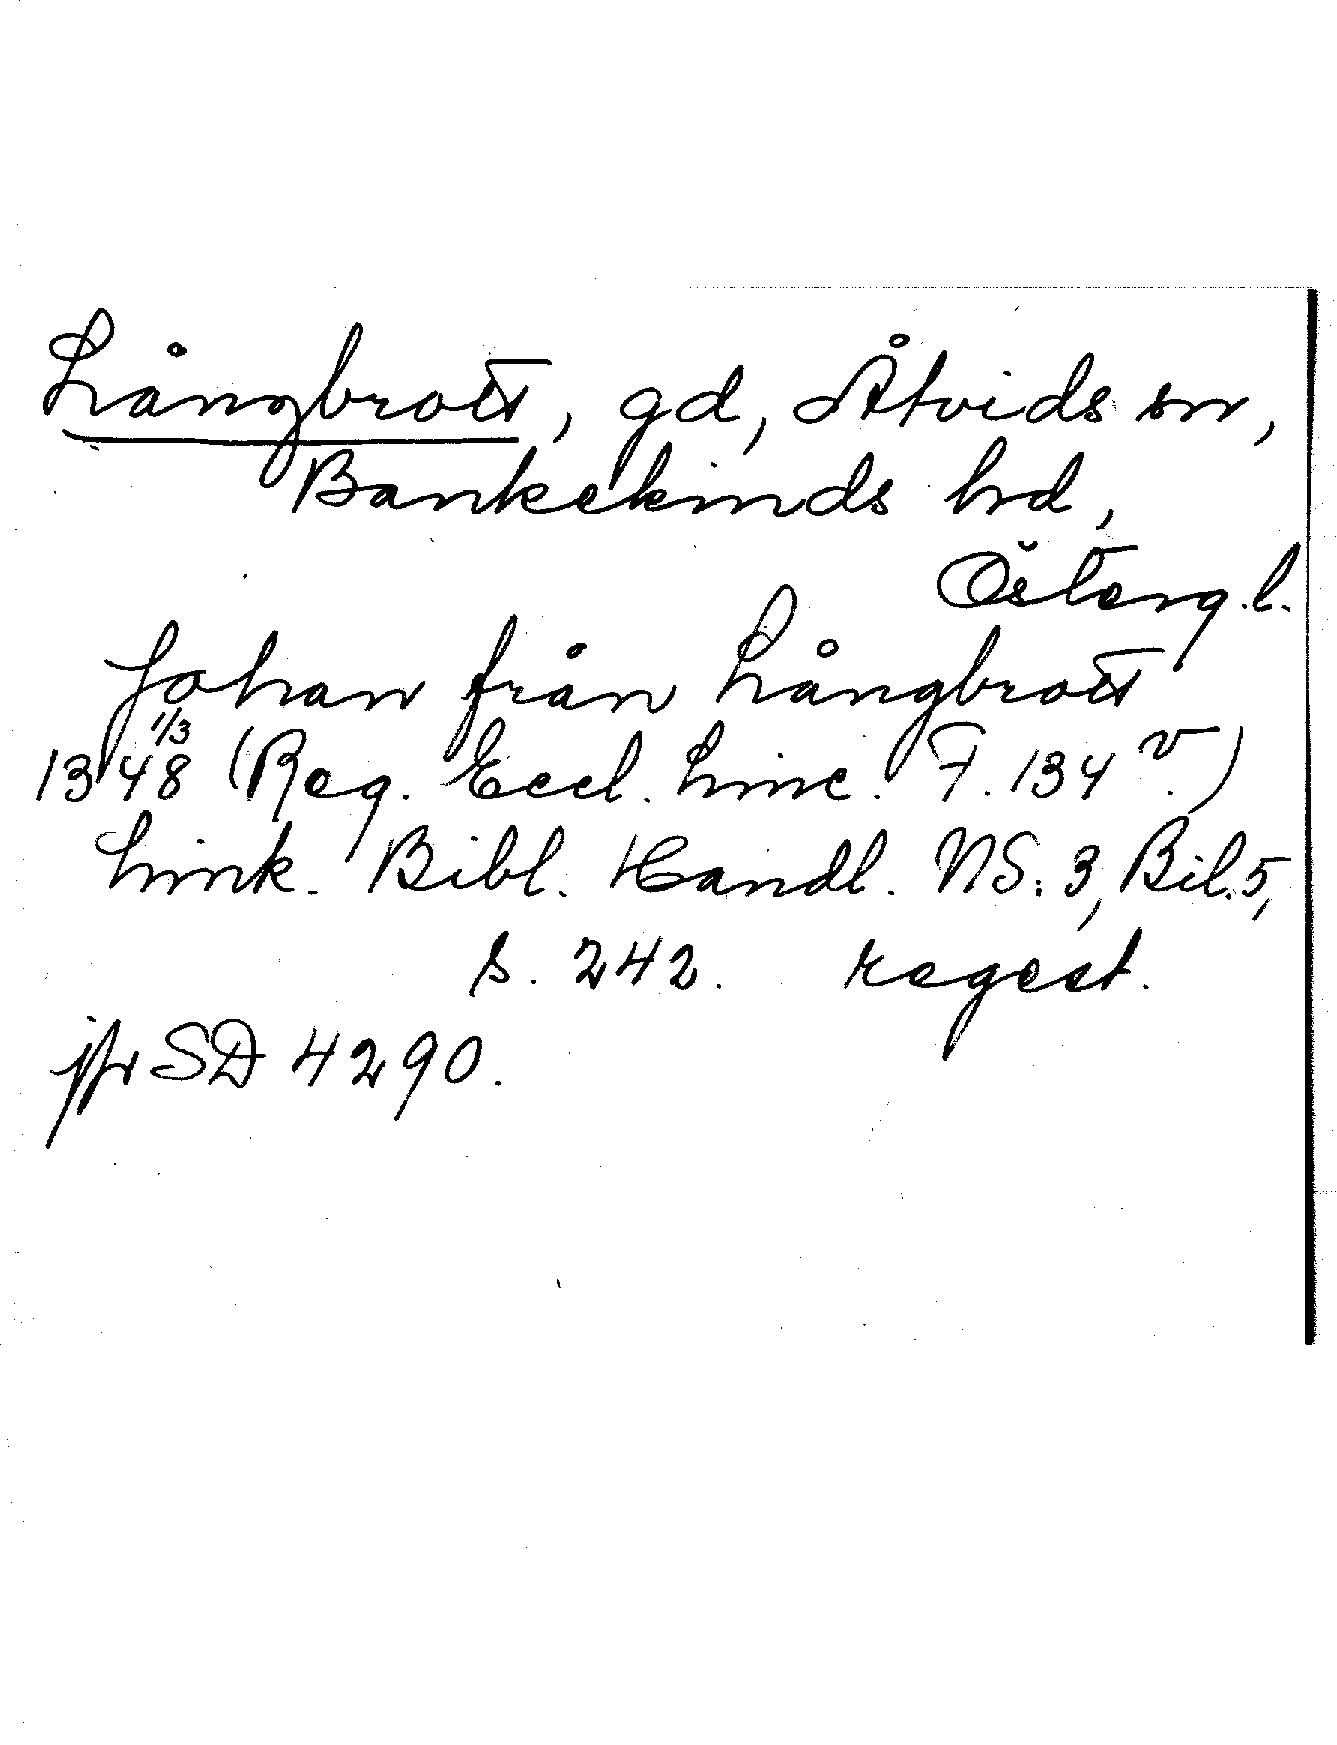 Långbrott, gd, Åtvids sn,
Bankekinds hd,
Österg.l.
Johan från Långbrott
1348 1/3 (Reg. Eccl. Linc. F. 134 v.)
Link. Bibl. Handl. NS: 3, Bil. 5,
s. 242. regest.
jfr SD 4290.